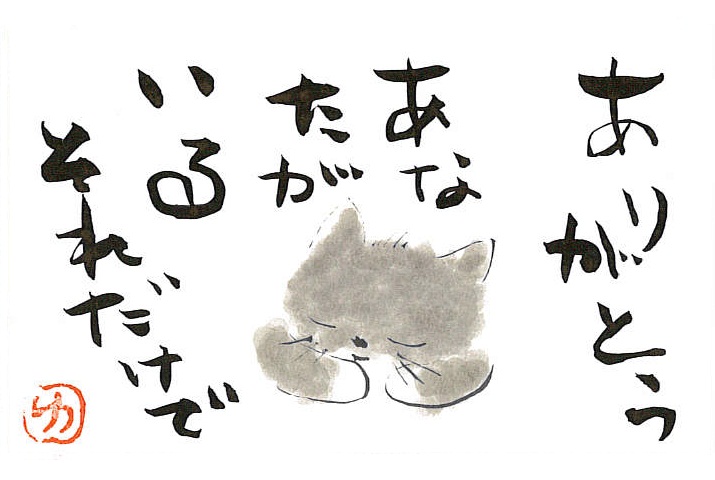 ありがとう
あな
たが
いる
それだけで
ゆ